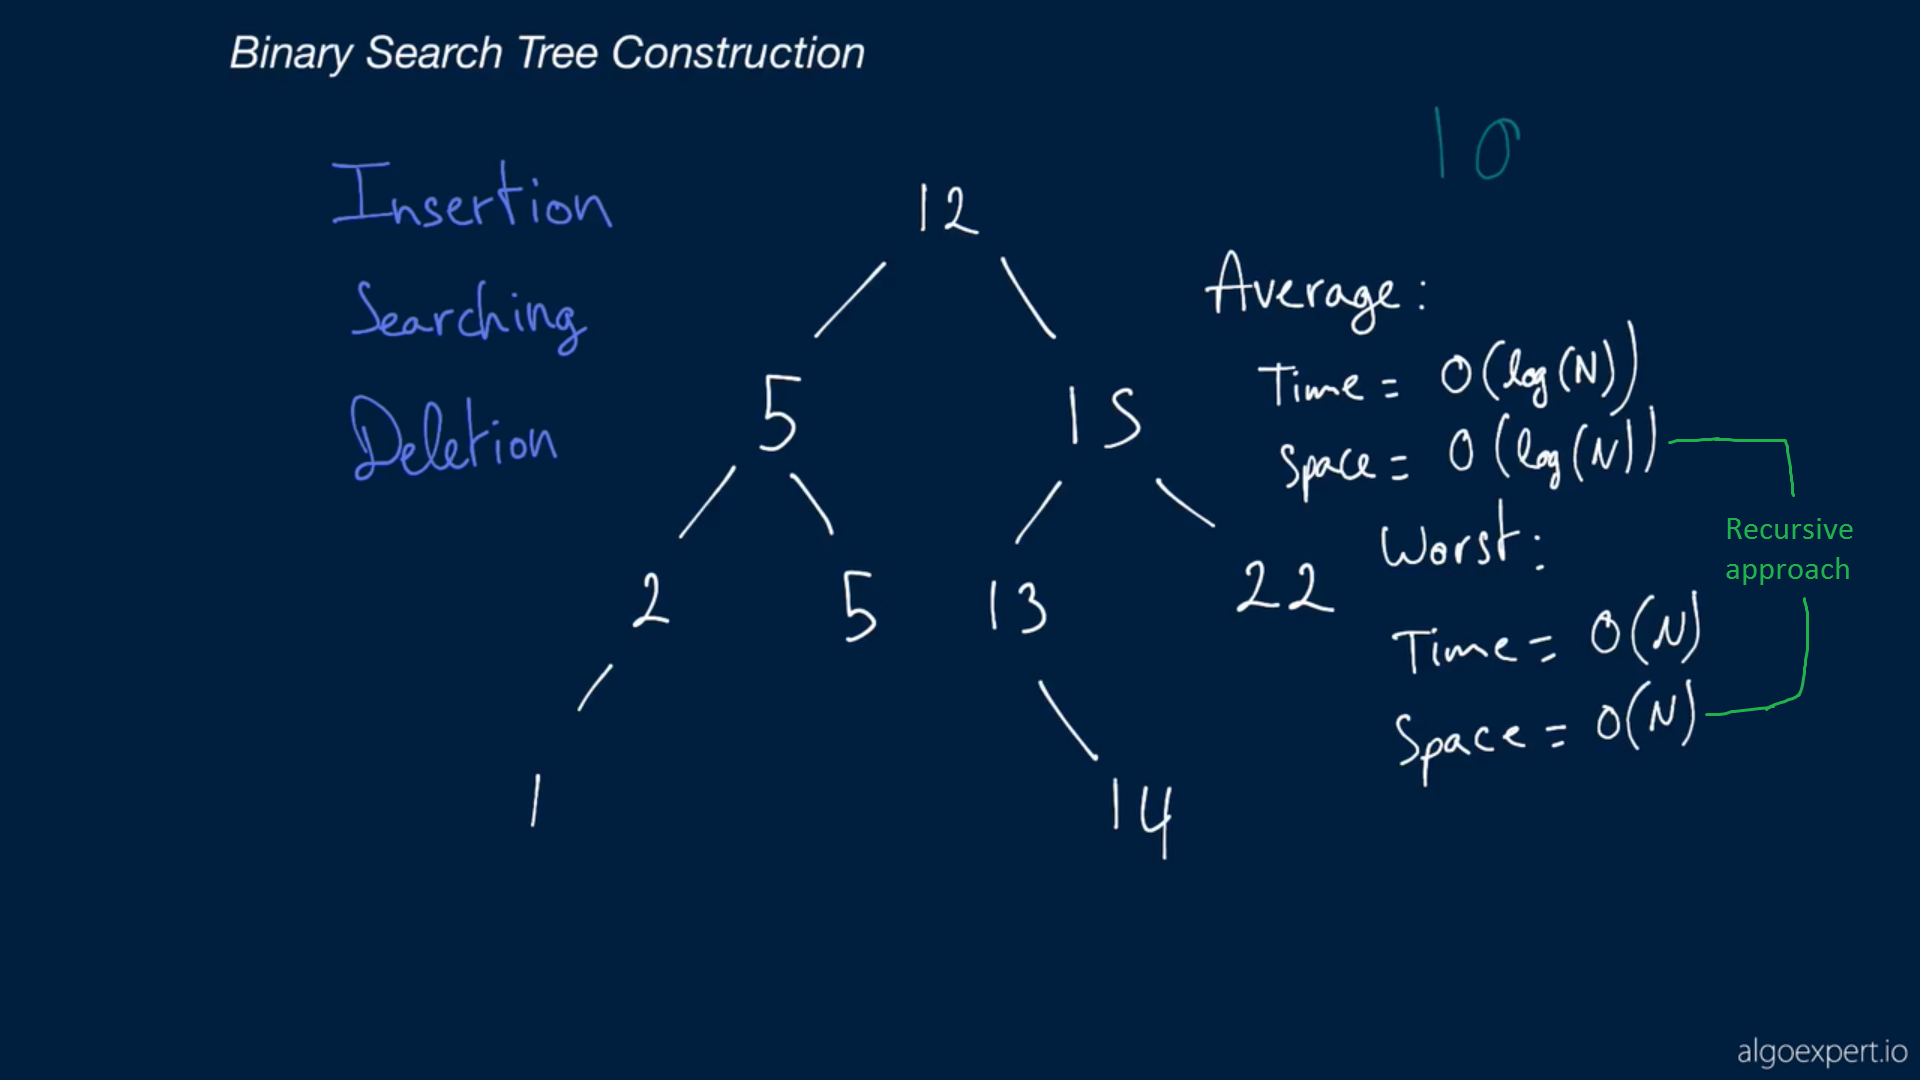 Binary Search Tree Construction
10
Insertion
Searching
Deletion
12
5 15
2 5 13 22
1 14
Average:
Time = O(log(N))
Space = O(log(N))
Worst:
Time = O(N)
Space = O(N)
Recursive
approach
algoexpert.io